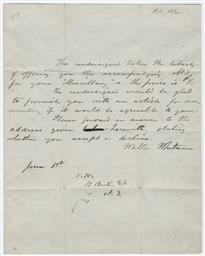 The undersigned takes the liberty
of offering you the accompanying MS.
for your "Miscellany," – the price is $8.
The undersigned would be glad
to furnish you with an article for each
number, if it would be agreeable to you.
Please forward an answer to the
address given herewith, stating
whether you accept or decline
Walter Whitman
June 1st
N.Y.